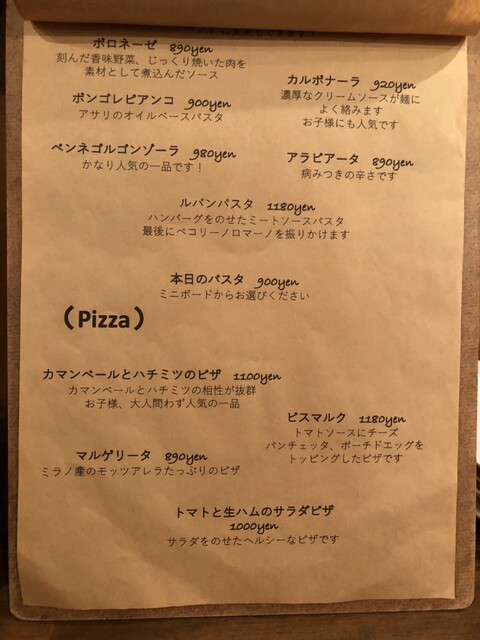 ボロネーゼ 890yen
刻んだ香味野菜、じっくり焼いた肉を
素材として煮込んだソース
カルボナーラ 920yen
濃厚なクリームソースが麺に
よく絡みます
お子様にも人気です
ボンゴレビアンコ 900yen
アサリのオイルベースパスタ
ペンネゴルゴンゾーラ 980yen
かなり人気の一品です！
アラビアータ 890yen
病みつきの辛さです
ルパンパスタ 1180yen
ハンバーグをのせたミートソースパスタ
最後にペコリーノロマーノを振りかけます
本日のパスタ 900yen
ミニボードからお選びください
(Pizza)
カマンベールとハチミツのピザ 1100yen
カマンベールとハチミツの相性が抜群
お子様、大人問わず人気の一品
ビスマルク 1180yen
トマトソースにチーズ
パンチェッタ、ポーチドエッグを
トッピングしたピザです
マルゲリータ 890yen
ミラノ産のモッツアレラたっぷりのピザ
トマトと生ハムのサラダピザ
1000yen
サラダをのせたヘルシーなピザです